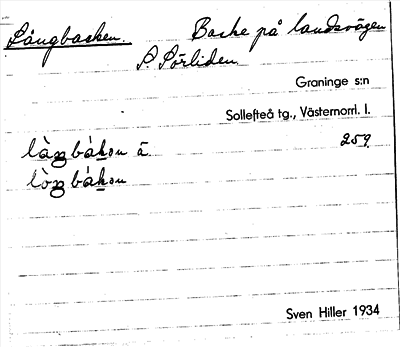 Långbacken. Backe på landsvägen
S. Sörliden
Graninge s:n
Sollefteå tg., Västernorrl. l.
låŋbàkən ä 259
lòŋbàkən
Sven Hiller 1934